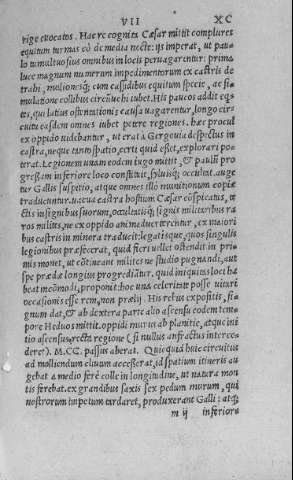 VII XC
rige euocatos. Hac re cognita Cæsar mittit complures
equitum turmas eò de media nocte: ijs imperat, ut pau-
lo tumultuosius omnibus in locis peruagarentur: prima
luce magnum numerum impedimentorum ex castris de
trahi, mulionesq; cum cassidibus equitum specie, ac si-
mulatione collibus circũuehi iubet. His paucos addit equi
tes, qui latius ostentationis causa uagarentur, longo cir
cuitu easdem omnes iubet petere regiones. hæc procul
ex oppido uidebantur, ut erat a Gergouia despectus in
castra, neque tanto spatio, certi quid esset, explorari po
terat. Legionem unam eodem iugo mittit, & paulũ pro
gressam inferiore loco constituit, syluisq; occultat. auge
tur Gallis suspitio, atque omnes illo munitionum copiæ
traducuntur. uacua castra hostium Cæsar cõspicatus, te
ctis insignibus suorum, occultatisq; signis militaribus ra
ros milites, ne ex oppido animaduerterentur, ex maiori
bus castris in minora traducit: legatisque, quos singulis
legionibus præfecerat, quid fieri uellet ostendit. in pri-
mis monet, ut cõtineant milites ne studio pugnandi, aut
spe prædæ longius progrediãtur. quid iniquitas loci ha
beat incõmodi, proponit: hoc una celeritate posse uitari
occasionis esse rem, non prælij. His rebus expositis, si-
gnum dat, & ab dextera parte alio ascensu eodem tem-
pore Heduos mittit. oppidi murus ab planitie, atque ini
tio ascensus, recta regione (si nullus anfractus interce-
deret) M. CC. passus aberat. Quicquid huic circuitus
ad molliendum cliuum accesserat, id spatium itineris au
gebat a medio ferè colle in longitudine, ut natura mon
tis ferebat. ex grandibus saxis sex pedum murum, qui
nostrorum impetum tardaret, produxerant Galli: atq;
m ij inferiore